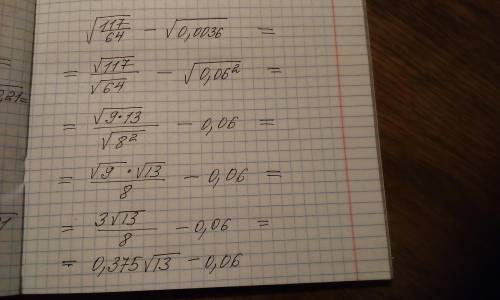 √(117/64) − √0,0036 =
= √117/√64 − √0,06² =
= √9·13/√8² − 0,06 =
= √9·√13/8 − 0,06 =
= 3√13/8 − 0,06 =
= 0,375√13 − 0,06
0,21=